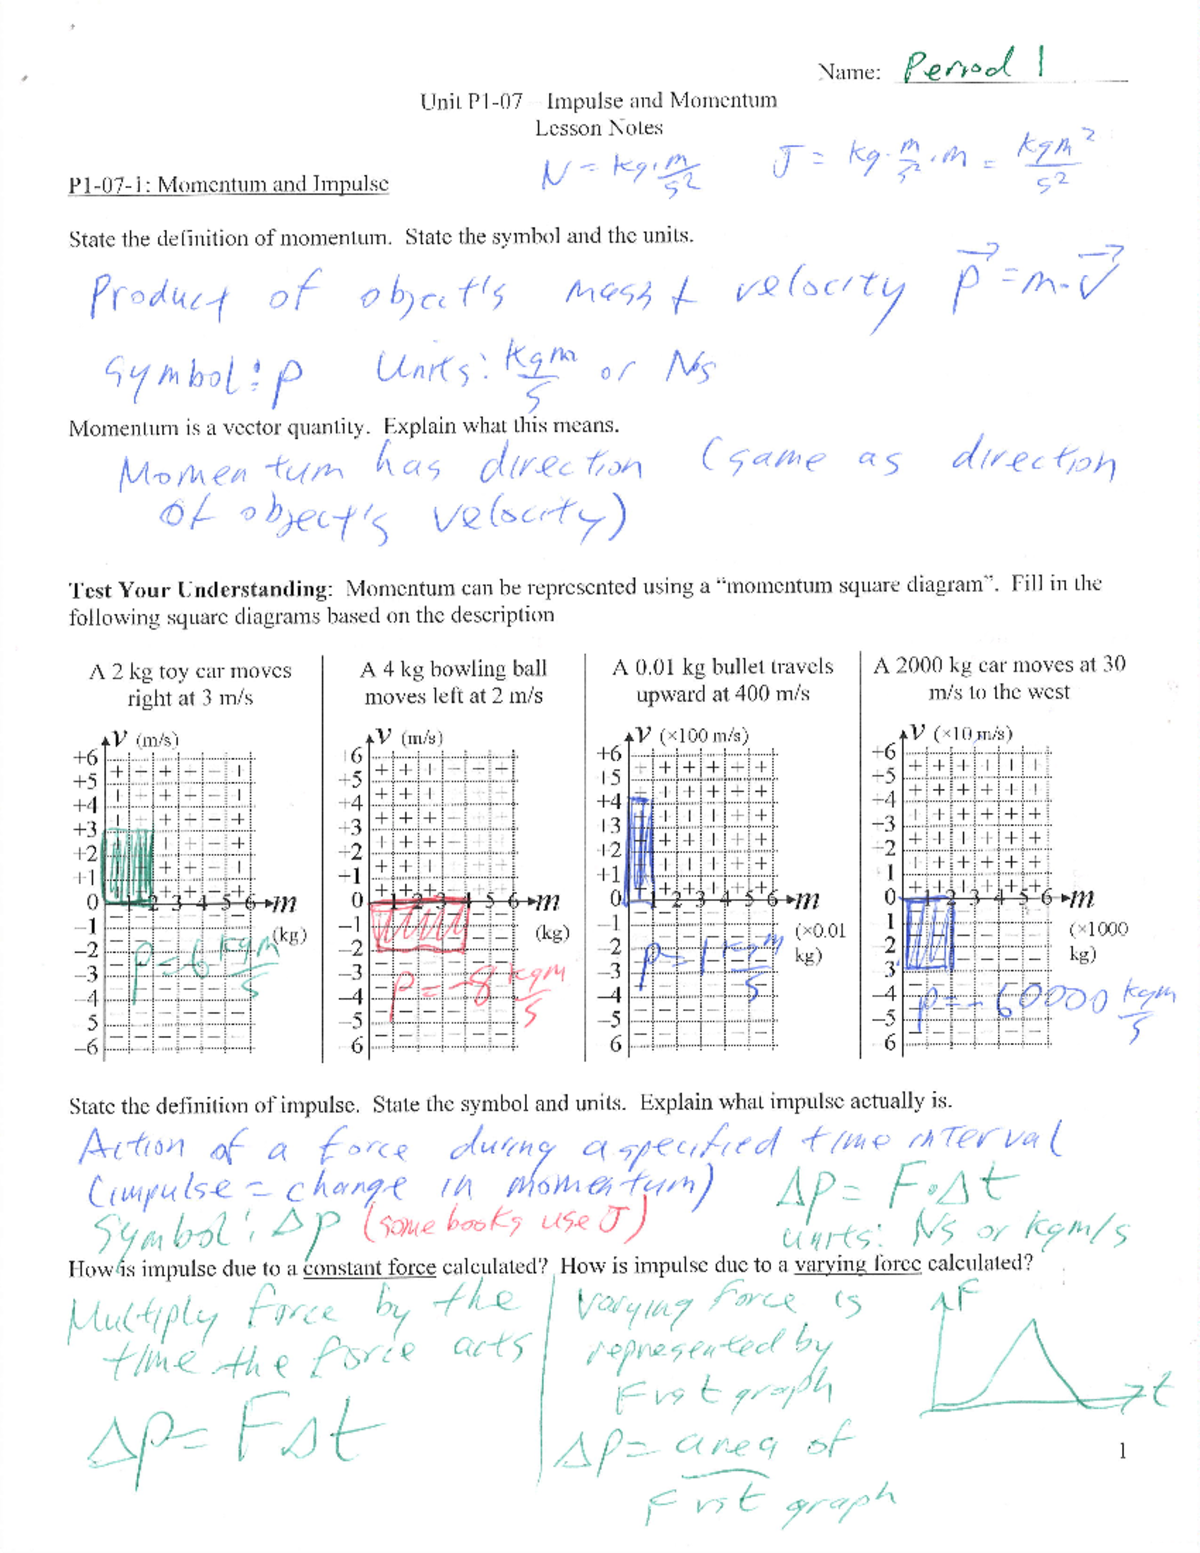 Name: Period 1
Unit P1-07 – Impulse and Momentum
Lesson Notes
N = kg·m/s² J = kg·m/s²·m = kgm²/s²
P1-07-1: Momentum and Impulse
State the definition of momentum. State the symbol and the units.
Product of object's mass & velocity p⃗ = m·v⃗
Symbol: p Units: kgm/s or Ns
Momentum is a vector quantity. Explain what this means.
Momentum has direction (same as direction
of object's velocity)
Test Your Understanding: Momentum can be represented using a “momentum square diagram”. Fill in the
following square diagrams based on the description
A 2 kg toy car moves
right at 3 m/s
v (m/s)
+6
+5
+4
+3
+2
+1
0 1 2 3 4 5 6 m
(kg)
–1
–2
–3
–4
–5
–6
p = 6 kgm/s
A 4 kg bowling ball
moves left at 2 m/s
v (m/s)
+6
+5
+4
+3
+2
+1
0 1 2 3 4 5 6 m
(kg)
–1
–2
–3
–4
–5
–6
p = -8 kgm/s
A 0.01 kg bullet travels
upward at 400 m/s
v (×100 m/s)
+6
+5
+4
+3
+2
+1
0 1 2 3 4 5 6 m
(×0.01
kg)
–1
–2
–3
–4
–5
–6
p = 1 kgm/s
A 2000 kg car moves at 30
m/s to the west
v (×10 m/s)
+6
+5
+4
+3
+2
+1
0 1 2 3 4 5 6 m
(×1000
kg)
–1
–2
–3
–4
–5
–6
p = -60000 kgm/s
State the definition of impulse. State the symbol and units. Explain what impulse actually is.
Action of a force during a specified time interval
(impulse = change in momentum) Δp = F·Δt
Symbol: Δp (some books use J) units: Ns or kgm/s
How is impulse due to a constant force calculated? How is impulse due to a varying force calculated?
Multiply force by the
time the force acts
Δp = FΔt
Varying force is
represented by
F vs t graph
Δp = area of
F vs t graph
F
t
1